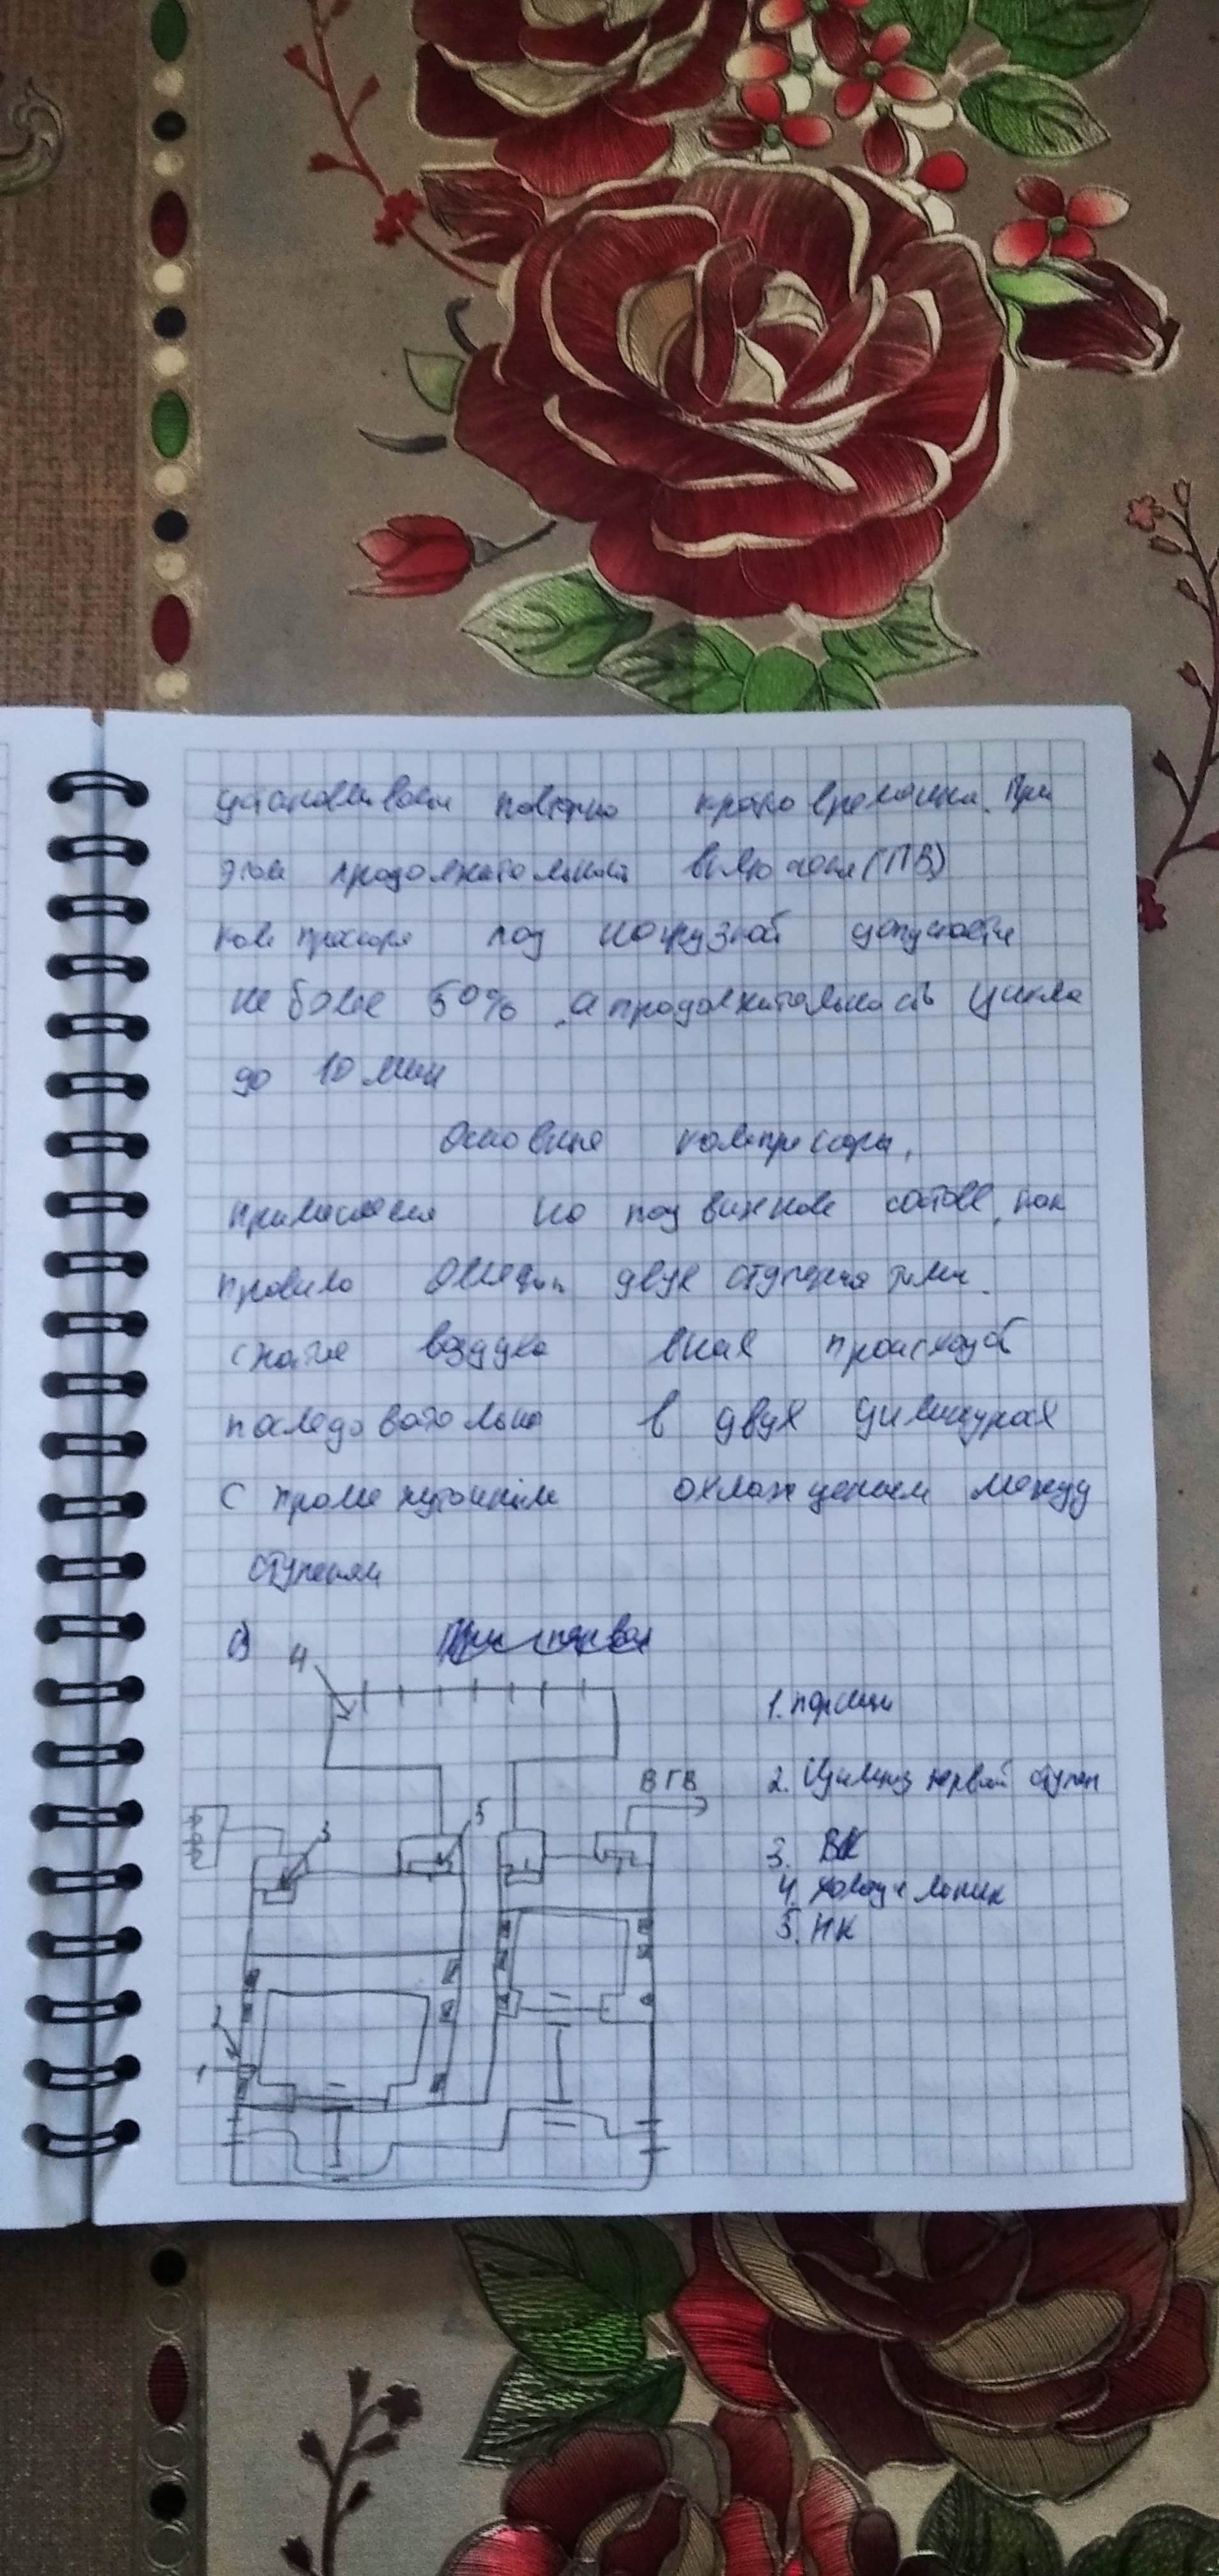 устанавливаем повторно кратковременный. При
этом продолжительность включения (ПВ)
компрессора под нагрузкой допускается
не более 50%, а продолжительность цикла
до 10 мин
Основные компрессоры,
применяемые на подвижном составе, как
правило двух ступенчатыми.
сжатие воздуха в них происходит
последовательно в двух цилиндрах
с промежуточным охлаждением между
ступенями
а)
4
1. поршни
ВГВ
2. Цилинд первой ступен
5
3
3. ВК
4. холодильник
5. НК
2
1